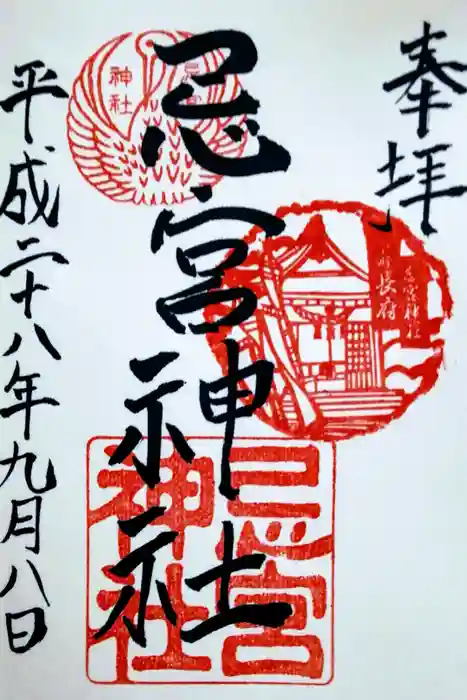 奉拝
忌宮神社
平成二十八年九月八日
忌宮
神社
長府
忌宮神社
忌宮
神社